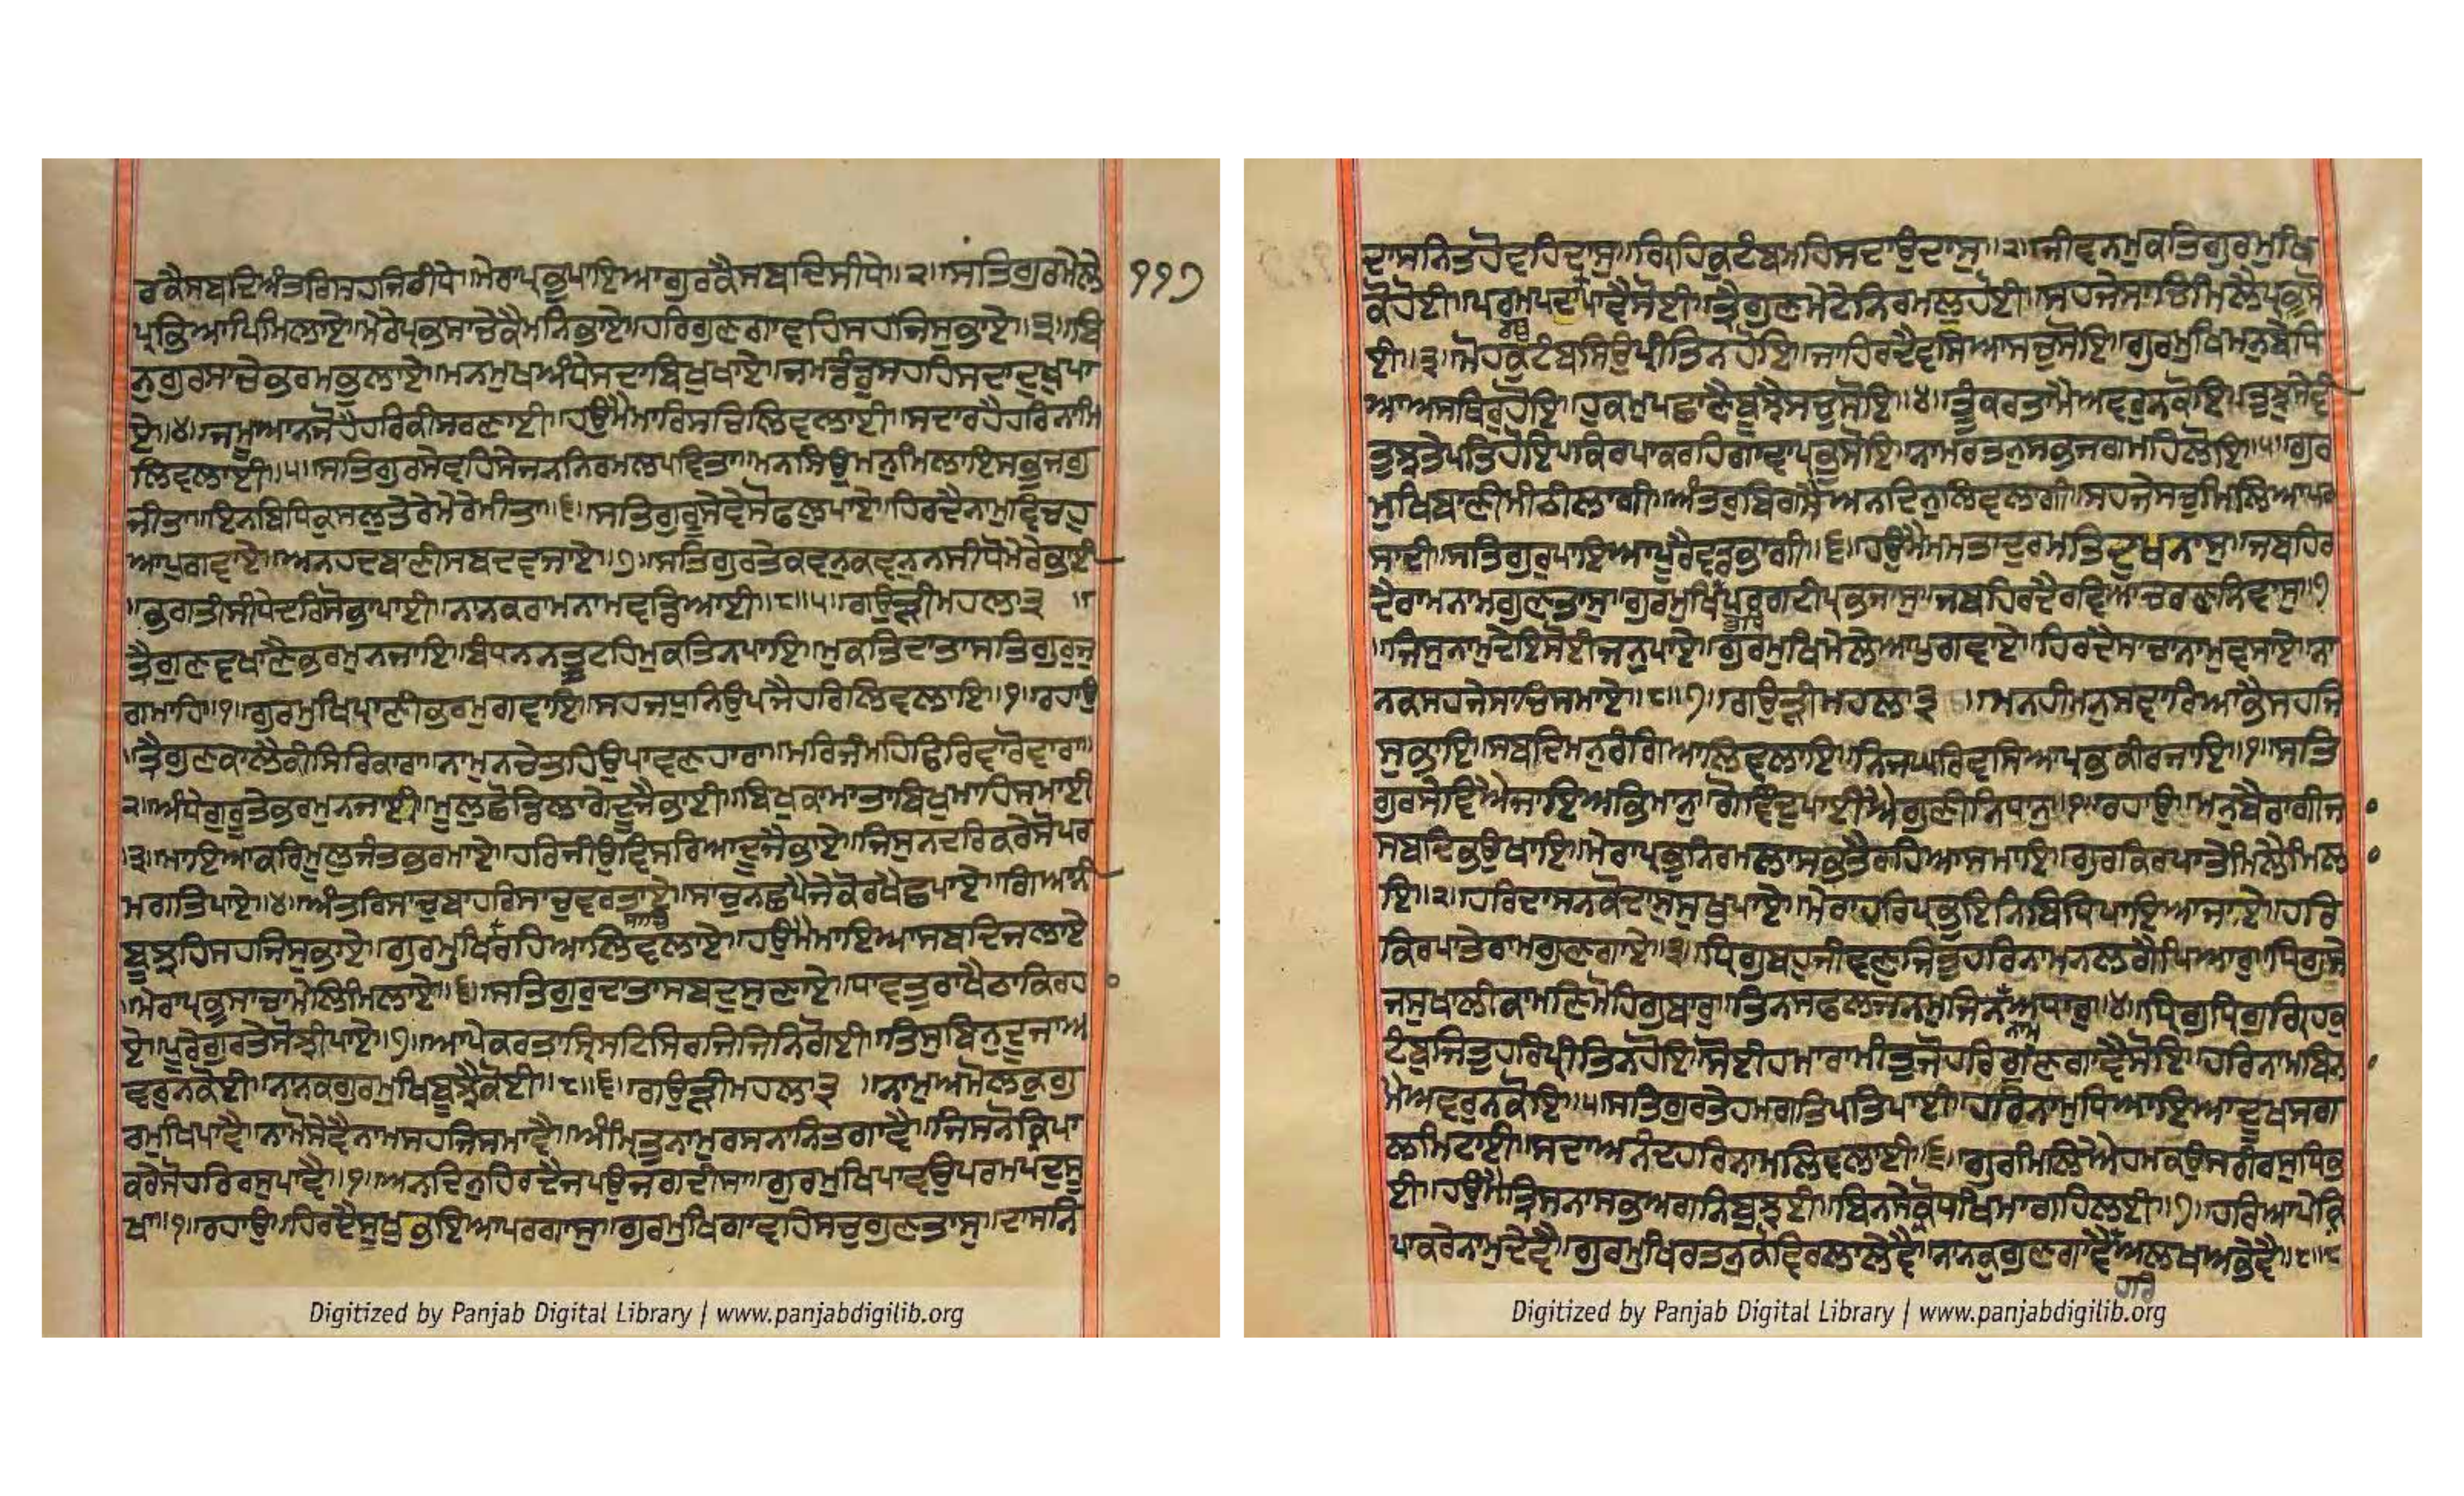 ਰਕੈਸਬਦਿਅੰਤਰਿਸਹਜਿਰੀਧੇ॥ਮੇਰਾਪ੍ਰਭੁਪਾਇਆਗੁਰਕੈਸਬਦਿਸੀਧੇ॥੨॥ਸਤਿਗੁਰਮੇਲੇ ੧੧੭
ਪ੍ਰਭਿਆਪਿਮਿਲਾਏ॥ਮੇਰੇਪ੍ਰਭਸਾਚੇਕੈਮਨਿਭਾਏ॥ਹਰਿਗੁਣਗਾਵਹਿਸਹਜਿਸੁਭਾਏ॥੩॥ਬਿ
ਨੁਗੁਰਸਾਚੇਭਰਮਿਭੁਲਾਏ॥ਮਨਮੁਖਅੰਧੇਸਦਾਬਿਖੁਖਾਏ॥ਜਮਡੰਡੁਸਹਹਿਸਦਾਦੁਖੁਪਾ
ਏ॥੪॥ਜਮੂਆਨਜੋਹੈਹਰਿਕੀਸਰਣਾਈ॥ਹਉਮੈਮਾਰਿਸਚਿਲਿਵਲਾਈ॥ਸਦਾਰਹੈਹਰਿਨਾਮਿ
ਲਿਵਲਾਈ॥੫॥ਸਤਿਗੁਰਸੇਵਹਿਸੇਜਨਨਿਰਮਲਪਵਿਤਾ॥ਮਨਸਿਉਮਨੁਮਿਲਾਇਸਭੁਜਗੁ
ਜੀਤਾ॥ਇਨਬਿਧਿਕੁਸਲੁਤੇਰੇਮੇਰੇਮੀਤਾ॥੬॥ਸਤਿਗੁਰੂਸੇਵੇਸੋਫਲੁਪਾਏ॥ਹਿਰਦੈਨਾਮੁਵਿਚਹੁ
ਆਪੁਗਵਾਏ॥ਅਨਹਦਬਾਣੀਸਬਦੁਵਜਾਏ॥੭॥ਸਤਿਗੁਰਤੇਕਵਨੁਕਵਨੁਨਸੀਧੋਮੇਰੇਭਾਈ
॥ਭਗਤੀਸੀਧੇਦਰਿਸੋਭਾਪਾਈ॥ਨਾਨਕਰਾਮਨਾਮਿਵਡਿਆਈ॥੮॥੫॥ਗਉੜੀਮਹਲਾ੩॥
ਤ੍ਰੈਗੁਣਵਖਾਣੈਭਰਮੁਨਜਾਇ॥ਬੰਧਨਨਤੂਟਹਿਮੁਕਤਿਨਪਾਇ॥ਮੁਕਤਿਦਾਤਾਸਤਿਗੁਰੁਜੁ
ਗਮਾਹਿ॥੧॥ਗੁਰਮੁਖਿਪ੍ਰਾਣੀਭਰਮੁਗਵਾਇ॥ਸਹਜਧੁਨਿਉਪਜੈਹਰਿਲਿਵਲਾਇ॥੧॥ਰਹਾਉ
॥ਤ੍ਰੈਗੁਣਕਾਲੈਕੀਸਿਰਿਕਾਰਾ॥ਨਾਮੁਨਚੇਤਹਿਉਪਾਵਣਹਾਰਾ॥ਮਰਿਜੰਮਹਿਫਿਰਿਵਾਰੋਵਾਰਾ॥
੨॥ਅੰਧੇਗੁਰੂਤੇਭਰਮੁਨਜਾਈ॥ਮੂਲੁਛੋਡਿਲਾਗੇਦੂਜੈਭਾਈ॥ਬਿਖੁਕਾਮਾਤਾਬਿਖੁਮਾਹਿਸਮਾਈ
॥੩॥ਮਾਇਆਕਰਿਮੂਲੁਜੰਤ੍ਰਭਰਮਾਏ॥ਹਰਿਜੀਉਵਿਸਰਿਆਦੂਜੈਭਾਏ॥ਜਿਸੁਨਦਰਿਕਰੇਸੋਪਰ
ਮਗਤਿਪਾਏ॥੪॥ਅੰਤਰਿਸਾਚੁਬਾਹਰਿਸਾਚੁਵਰਤਾਏ॥ਸਾਚੁਨਛਪੈਜੇਕੋਰਖੈਛਪਾਏ॥ਗਿਆਨੀ
ਬੂਝਹਿਸਹਜਿਸੁਭਾਏ॥ਗੁਰਮੁਖਿਰਹਿਆਲਿਵਲਾਏ॥ਹਉਮੈਮਾਇਆਸਬਦਿਜਲਾਏ
॥ਮੇਰਾਪ੍ਰਭੁਸਾਚਾਮੇਲਿਮਿਲਾਏ॥੬॥ਸਤਿਗੁਰੁਦਾਤਾਸਬਦੁਸੁਣਾਏ॥ਧਾਵਤੁਰਾਖੈਠਾਕਿਰਹਾ
ਏ॥ਪੂਰੇਗੁਰਤੇਸੋਝੀਪਾਏ॥੭॥ਆਪੇਕਰਤਾਸ੍ਰਿਸਟਿਸਿਰਜਿਜਿਨਿਗੋਈ॥ਤਿਸੁਬਿਨੁਦੂਜਾਅ
ਵਰੁਨਕੋਈ॥ਨਾਨਕਗੁਰਮੁਖਿਬੂਝੈਕੋਈ॥੮॥੬॥ਗਉੜੀਮਹਲਾ੩॥ਨਾਮੁਅਮੋਲਕੁਗੁ
ਰਮੁਖਿਪਾਵੈ॥ਨਾਮੋਸੇਵੈਨਾਮਸਹਜਿਸਮਾਵੈ॥ਅੰਮ੍ਰਿਤੁਨਾਮੁਰਸਨਾਨਿਤਗਾਵੈ॥ਜਿਸਨੋਕ੍ਰਿਪਾ
ਕਰੇਸੋਹਰਿਰਸੁਪਾਵੈ॥੧॥ਅਨਦਿਨੁਹਿਰਦੈਜਪਉਜਗਦੀਸਾ॥ਗੁਰਮੁਖਿਪਾਵਉਪਰਮਪਦੁਸੂ
ਖਾ॥੧॥ਰਹਾਉ॥ਹਿਰਦੈਸੂਖੁਭਇਆਪਰਗਾਸੁ॥ਗੁਰਮੁਖਿਗਾਵਹਿਸਚੁਗੁਣਤਾਸੁ॥ਦਾਸਨਿ
Digitized by Panjab Digital Library | www.panjabdigilib.org
ਦਾਸਨਿਤਹੋਵਹਿਦਾਸੁ॥ਗ੍ਰਿਹਿਕੁਟੰਬਮਹਿਸਦਾਉਦਾਸੁ॥੨॥ਜੀਵਨਮੁਕਤਿਗੁਰਮੁਖਿ
ਕੋਹੋਈ॥ਪਰਮਪਦਾਪਾਵੈਸੋਈ॥ਤ੍ਰੈਗੁਣਮੇਟੇਨਿਰਮਲੁਹੋਈ॥ਸਹਜੇਸਾਚਿਮਿਲੈਪ੍ਰਭੁਸੋ
ਈ॥੩॥ਮੋਹਕੁਟੰਬਸਿਉਪ੍ਰੀਤਿਨਹੋਇ॥ਜਾਹਿਰਦੈਵਸਿਆਸਚੁਸੋਇ॥ਗੁਰਮੁਖਿਮਨੁਬੇਧਿ
ਆਅਸਥਿਰੁਹੋਇ॥ਹੁਕਮੁਪਛਾਣੈਬੂਝੈਸਚੁਸੋਇ॥੪॥ਤੂੰਕਰਤਾਮੈਅਵਰੁਨਕੋਇ॥ਤੁਝੁਸੇਵੀ
ਤੁਝਤੇਪਤਿਹੋਇ॥ਕਿਰਪਾਕਰਹਿਗਾਵਾਪ੍ਰਭੁਸੋਇ॥ਨਾਮਰਤਨੁਸਭਜਗਮਹਿਲੋਇ॥੫॥ਗੁਰ
ਮੁਖਿਬਾਣੀਮੀਠੀਲਾਗੀ॥ਅੰਤਰੁਬਿਗਸੈਅਨਦਿਨੁਲਿਵਲਾਗੀ॥ਸਹਜੇਸਚੁਮਿਲਿਆਪਰ
ਸਾਦੀ॥ਸਤਿਗੁਰੁਪਾਇਆਪੂਰੈਵਡਭਾਗੀ॥੬॥ਹਉਮੈਮਮਤਾਦੁਰਮਤਿਦੁਖਨਾਸੁ॥ਜਬਹਿਰ
ਦੈਰਾਮਨਾਮਗੁਣਤਾਸੁ॥ਗੁਰਮੁਖਿਪਰਗਟੀਪ੍ਰਭਜਾਸੁ॥ਜਬਹਿਰਦੈਰਵਿਆਚਰਣਨਿਵਾਸੁ॥੭
॥ਜਿਸੁਨਾਮੁਦੇਇਸੋਈਜਨੁਪਾਏ॥ਗੁਰਮੁਖਿਮੇਲੇਆਪੁਗਵਾਏ॥ਹਿਰਦੈਸਾਚਾਨਾਮੁਵਸਾਇ॥ਨਾ
ਨਕਸਹਜੇਸਾਚਿਸਮਾਏ॥੮॥੭॥ਗਉੜੀਮਹਲਾ੩॥ਮਨਹੀਮਨੁਸਵਾਰਿਆਭੈਸਹਜਿ
ਸੁਭਾਇ॥ਸਬਦਿਮਨੁਰੰਗਿਆਲਿਵਲਾਇ॥ਨਿਜਘਰਿਵਸਿਆਪ੍ਰਭਕੀਰਜਾਇ॥੧॥ਸਤਿ
ਗੁਰਸੇਵਿਐਜਾਇਅਭਿਮਾਨੁ॥ਗੋਵਿੰਦੁਪਾਈਐਗੁਣੀਨਿਧਾਨੁ॥੧॥ਰਹਾਉ॥ਮਨੁਬੈਰਾਗੀਜਾ
ਸਬਦਿਭਉਖਾਇ॥ਮੇਰਾਪ੍ਰਭੁਨਿਰਮਲਾਸਭਤੈਰਹਿਆਸਮਾਇ॥ਗੁਰਕਿਰਪਾਤੇਮਿਲੈਮਿਲਾ
ਇ॥੨॥ਹਰਿਦਾਸਨਕੋਦਾਸੁਸੁਖੁਪਾਏ॥ਮੇਰਾਹਰਿਪ੍ਰਭੁਇਨਿਬਿਧਿਪਾਇਆਜਾਏ॥ਹਰਿ
ਕਿਰਪਾਤੇਰਾਮਗੁਣਗਾਏ॥੩॥ਧ੍ਰਿਗੁਬਹੁਜੀਵਣੁਜਿਤੁਹਰਿਨਾਮਨਲਗੈਪਿਆਰੁ॥ਧ੍ਰਿਗੁਸੇ
ਜਸੁਖਾਲੀਕਾਮਣਿਮੋਹਿਗੁਬਾਰੁ॥ਤਿਨਸਫਲਜਨਮੁਜਿਨਅਧਾਰੁ॥੪॥ਧ੍ਰਿਗੁਧ੍ਰਿਗੁਗ੍ਰਿਹੁਕੁ
ਟੰਬੁਜਿਤੁਹਰਿਪ੍ਰੀਤਿਨਹੋਇ॥ਸੋਈਹਮਾਰਾਮੀਤੁਜੋਹਰਿਗੁਣਗਾਵੈਸੋਇ॥ਹਰਿਨਾਮਬਿਨਾ
ਮੈਅਵਰੁਨਕੋਇ॥੫॥ਸਤਿਗੁਰਤੇਹਮਗਤਿਪਤਿਪਾਈ॥ਹਰਿਨਾਮੁਧਿਆਇਆਦੂਖਸਗ
ਲਮਿਟਾਈ॥ਸਦਾਅਨੰਦਹਰਿਨਾਮਲਿਵਲਾਈ॥੬॥ਗੁਰਿਮਿਲਿਐਹਮਕਉਸਰੀਰਸੁਧਿਭ
ਈ॥ਹਉਮੈਤ੍ਰਿਸਨਾਸਭਅਗਨਿਬੁਝਈ॥ਬਿਨਸੇਕ੍ਰੋਧਖਿਮਾਗਹਿਲਈ॥੭॥ਹਰਿਆਪੇਕ੍ਰਿ
ਪਾਕਰੇਨਾਮੁਦੇਵੈ॥ਗੁਰਮੁਖਿਰਤਨੁਕੋਵਿਰਲਾਲੇਵੈ॥ਨਾਨਕੁਗੁਣਗਾਵੈਅਲਖਅਭੇਵੈ॥੮॥੮
ਹਰਿ
Digitized by Panjab Digital Library | www.panjabdigilib.org